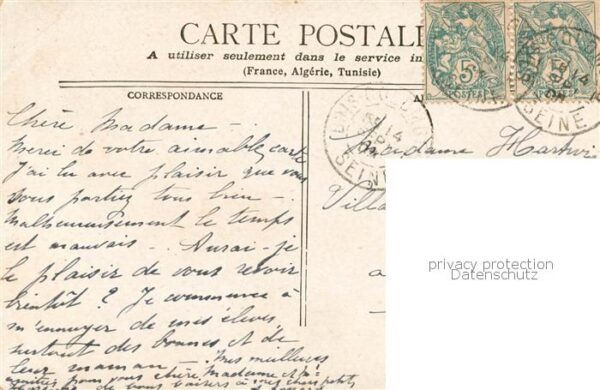 CARTE POSTALE
A utiliser seulement dans le service in
(France, Algérie, Tunisie)
CORRESPONDANCE
Chère Madame -
Merci de votre aimable carte
J'ai lu avec plaisir que vous
vous portiez tous bien -
Malheureusement le temps
est mauvais - Aurai-je
le plaisir de vous revoir
bientôt ? Je commence à
m'ennuyer de mes élèves
surtout des bonnes et de
leur maman - Mes meilleures
amitiés pour vous chère Madame et
de bons baisers à vos chers petits
Madame Hartwi
Villa
a
5
POSTES
5
POSTES
14
SEINE
14
SEINE
privacy protection
Datenschutz